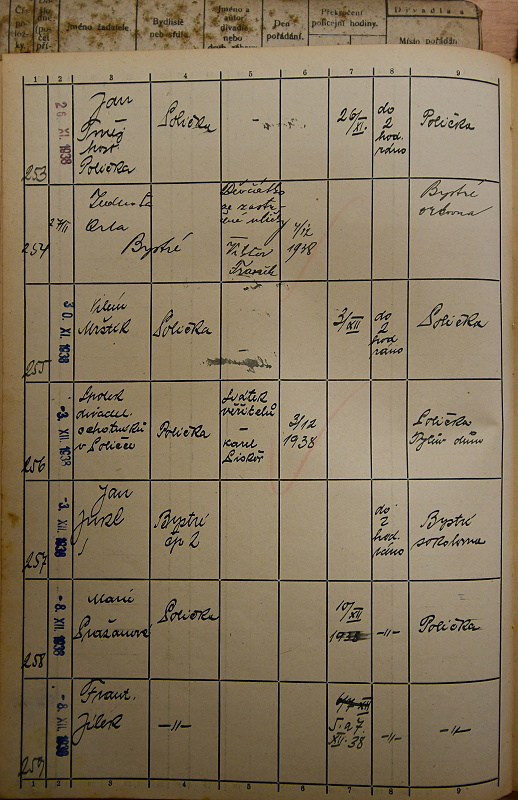 Jméno žadatele.
Bydliště
Jméno a
autor
divadla
nebo
Den
pořádání.
Překročení
policejní hodiny.
Divadla a
Místo pořádá
1 2 3 4 5 6 7 8 9
253
26. XI. 1938
Jan
host.
Polička
Polička
-
26/XI.
do
2
hod.
ráno
Polička
254
27/XI
Jednota
Orla
Bystré
Děvčátko
ze zastr-
čené uličky
Viktor
4/12
1938
Bystré
orlovna
255
30. XI. 1938
Vilém
Mrštík
Polička
3/XII
do
2
hod
ráno
Polička
256
-3. XII. 1938
Spolek
divadel.
ochotníků
v Poličce
Polička
Sjezd
věřitelů
-
Karel
Piskoř
3/12
1938
Polička
Tylův dům
257
-3. XII. 1938
Jan
Jukl
Bystré
čp 2
do
2
hod.
ráno
Bystré
sokolovna
258
-8. XII. 1938
Marie
Pražanová
Polička
10/XII
1938
-"-
Polička
259
-8. XII. 1938
Frant.
Jílek
-"-
5. a 7.
XII. 38
-"-
-"-
1 2 3 4 5 6 7 8 9